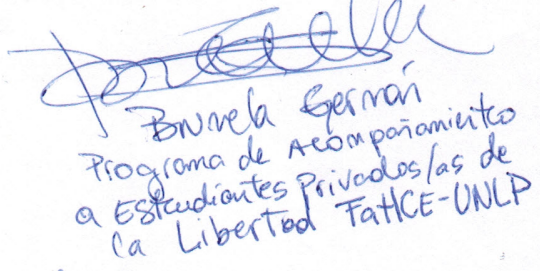 Brunela Germán
Programa de Acompañamiento
a Estudiantes Privados/as de
la Libertad FaHCE-UNLP